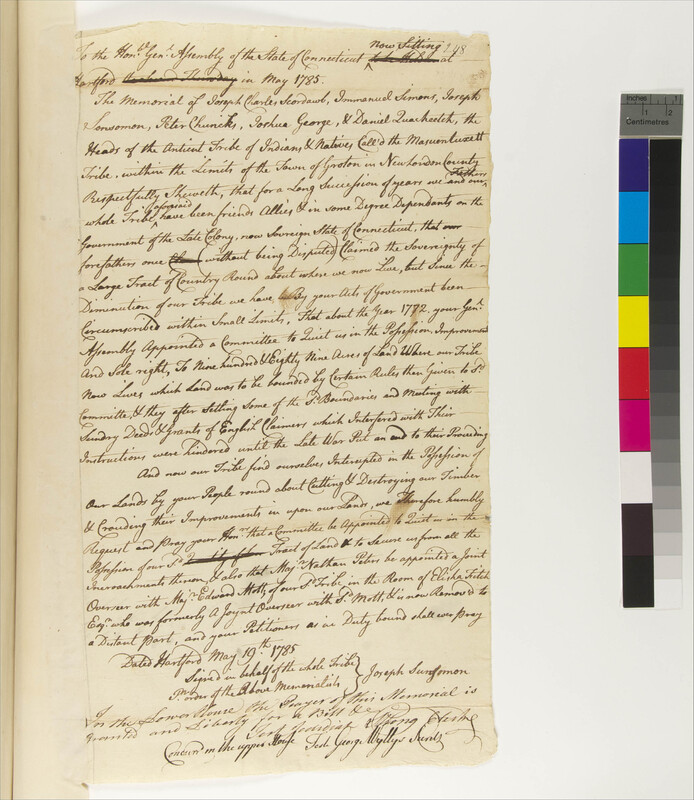 now Sitting 248
To the Hon.ble Gen.l Assembly of the State of Connecticut to be Holden at
Hartford in May 1785.
The Memorial of Joseph Charles Scordawb, Immanuel Simons, Joseph
Sonsomon, Peter Churicks, Joshua George, & Daniel Quacheetch, the
Heads of the Antient Tribe of Indians & Natives Call'd the Mashuntuxett
Tribe, within the Limits of the Town of Groton in New London County
Respectfully Sheweth, that for a Long Succession of years we and our Fathers
whole Tribe aforesaid have been friends Allies & in some Degree Dependants on the
Government of the Late Colony, now Sovereign State of Connecticut, that our
forefathers once without being Disputed Claimed the Sovereignty of
a Large Tract of Country Round about where we now Live, but Since the
Diminution of our Tribe we have By your Acts of Government been
Circumscribed within Small Limits, That about the Year 1772. your Gen.l
Assembly Appointed a Committee to Quiet us in the Possession, Improvement
And Sole right, To Nine hundred & Eighty Nine Acres of Land Where our Tribe
Now Lives which Land was to be bounded by Certain Rules then Given to S.d
Committee, & they after Setting Some of the S.d Boundaries and Meeting with
Sundry Deeds & Grants of English Claimers which Interfered with Their
Instructions were hindored until the Late War Put an end to their Proceding
And now our Tribe find ourselves Interupted in the Possession of
Our Lands by your People round about Cutting & Destroying our Timber
& Crouding their Improvements in upon our Lands, we Therefore humbly
Request and Pray your Hon.rs that a Committee be Appointed to Quiet us in the
Possession of our S.d Tract of Land & to Secure us from all the
Incroachments thereon, & also that Maj.r Nathan Peters be appointed a Joint
Overseer with Maj.r Edward Mott, of our S.d Tribe, in the Room of Elisha Fitch
Esq.r who was formerly A Joynt Overseer with S.d Mott, & is now Removed to
a Distant Part, and your Petitioners as in Duty bound shall ever Pray
Dated Hartford May 19th 1785
Signed in behalf of the whole Tribe
Pr. order of the Above Memorialists } Joseph Sunsomon
In the Lower House The Prayer of this Memorial is
granted and Liberty for a Bill &c
Test Jedidiah Strong Clerk
Concurd in the upper House Test. George Wyllys Secret.y
Inches 1 2
Centimetres